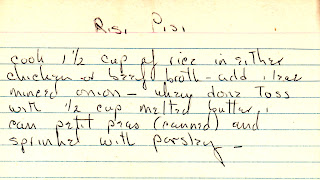 Risi Pisi
cook 1½ cup of rice in either
chicken or beef broth - add 1 tea
minced onion - when done Toss
with ½ cup melted butter, 1
can petit peas (canned) and
sprinkel with parsley -